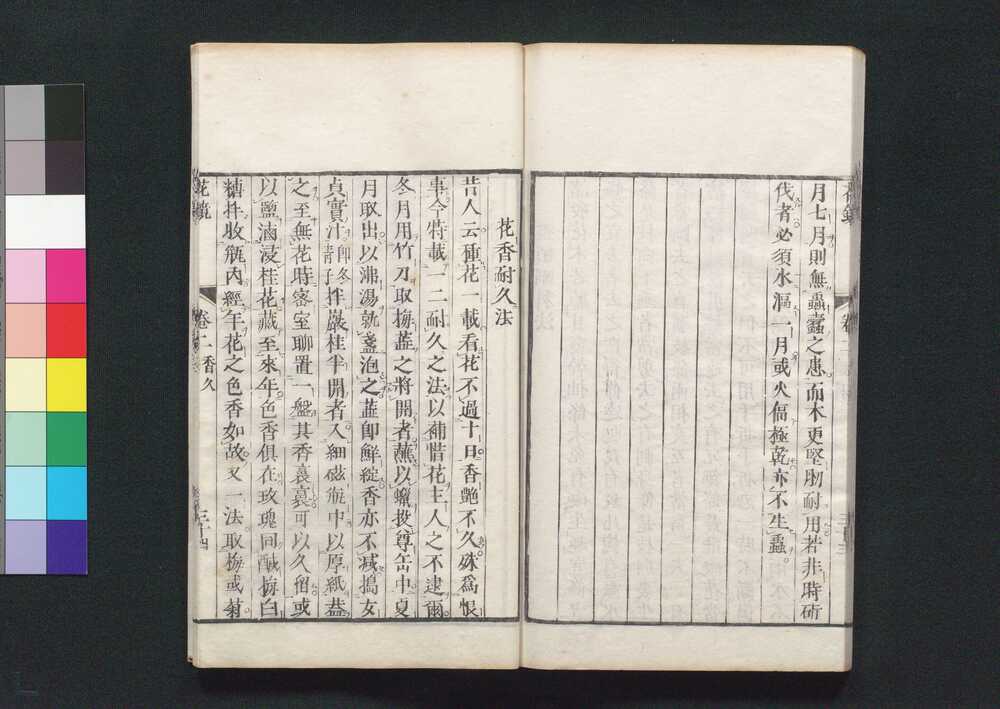 月七月則無蟲蠹之患而木更堅肕耐用若非時斫
伐者必須水漚一月或火偪極乾亦不生蟲
花香耐久法
昔人云種花一載看花不過十日香艷不久殊爲恨
事今特載一二耐久之法以補惜花主人之不逮爾
冬月用竹刀取梅蕋之將開者蘸以蠟投尊缶中夏
月取出以沸湯就盞泡之蕋卽鮮綻香亦不减搗女
貞實汁卽冬青子拌巖桂半開者入細磁瓶中以厚紙葢
之至無花時宻室聊置一盤其香裊裊可以久留或
以鹽滷浸桂花藏至來年色香俱在玫瑰同鹹梅白
糖拌收瓶内經年花之色香如故又一法取梅或菊
花鏡
卷二 香久
三十四